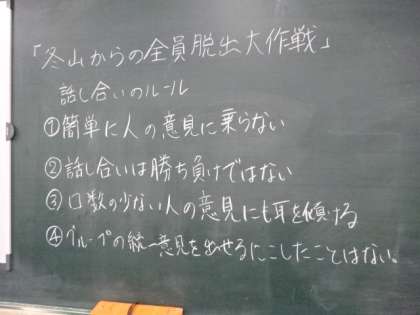 「冬山からの全員脱出大作戦」
話し合いのルール
①簡単に人の意見に乗らない
②話し合いは勝ち負けではない
③口数の少ない人の意見にも耳を傾ける
④グループの統一意見を出せるにこしたことはない。